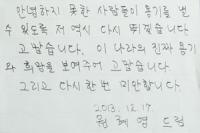 안녕하지 못한 사람들이 용기를 낼
수 있도록 저 역시 다시 뛰겠습니다
고맙습니다. 이 나라의 진짜 용기
와 희망을 보여주어 고맙습니다.
그리고 다시 한번 미안합니다.
2013. 12. 17.
혜영 드림